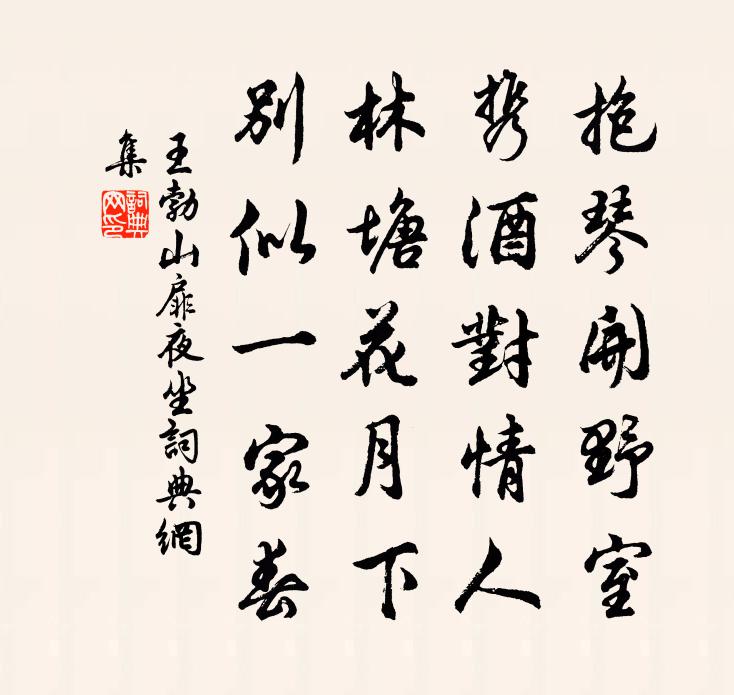 抱琴開野室
携酒對情人
林塘花月下
別似一家春
王勃山扉夜坐詞典網
集
詞典
网印